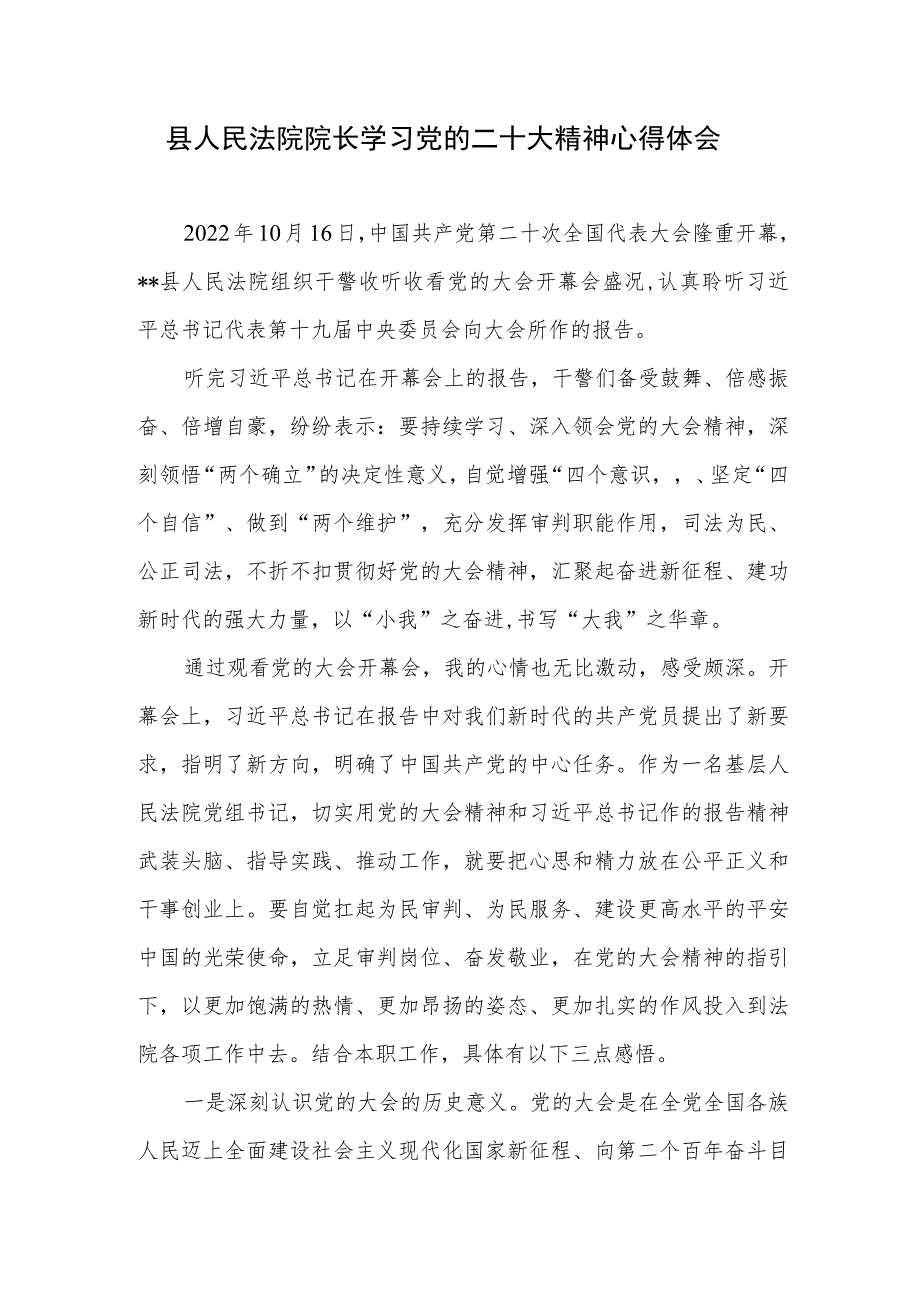 县人民法院院长学习党的二十大精神心得体会
2022年10月16日,中国共产党第二十次全国代表大会隆重开幕，
**县人民法院组织干警收听收看党的大会开幕会盛况,认真聆听习近
平总书记代表第十九届中央委员会向大会所作的报告。
听完习近平总书记在开幕会上的报告，干警们备受鼓舞、倍感振
奋、倍增自豪，纷纷表示：要持续学习、深入领会党的大会精神，深
刻领悟“两个确立”的决定性意义，自觉增强“四个意识，，、坚定“四
个自信”、做到“两个维护”，充分发挥审判职能作用，司法为民、
公正司法，不折不扣贯彻好党的大会精神，汇聚起奋进新征程、建功
新时代的强大力量，以“小我”之奋进,书写“大我”之华章。
通过观看党的大会开幕会，我的心情也无比激动，感受颇深。开
幕会上，习近平总书记在报告中对我们新时代的共产党员提出了新要
求，指明了新方向，明确了中国共产党的中心任务。作为一名基层人
民法院党组书记，切实用党的大会精神和习近平总书记作的报告精神
武装头脑、指导实践、推动工作，就要把心思和精力放在公平正义和
干事创业上。要自觉扛起为民审判、为民服务、建设更高水平的平安
中国的光荣使命，立足审判岗位、奋发敬业，在党的大会精神的指引
下，以更加饱满的热情、更加昂扬的姿态、更加扎实的作风投入到法
院各项工作中去。结合本职工作，具体有以下三点感悟。
一是深刻认识党的大会的历史意义。党的大会是在全党全国各族
人民迈上全面建设社会主义现代化国家新征程、向第二个百年奋斗目